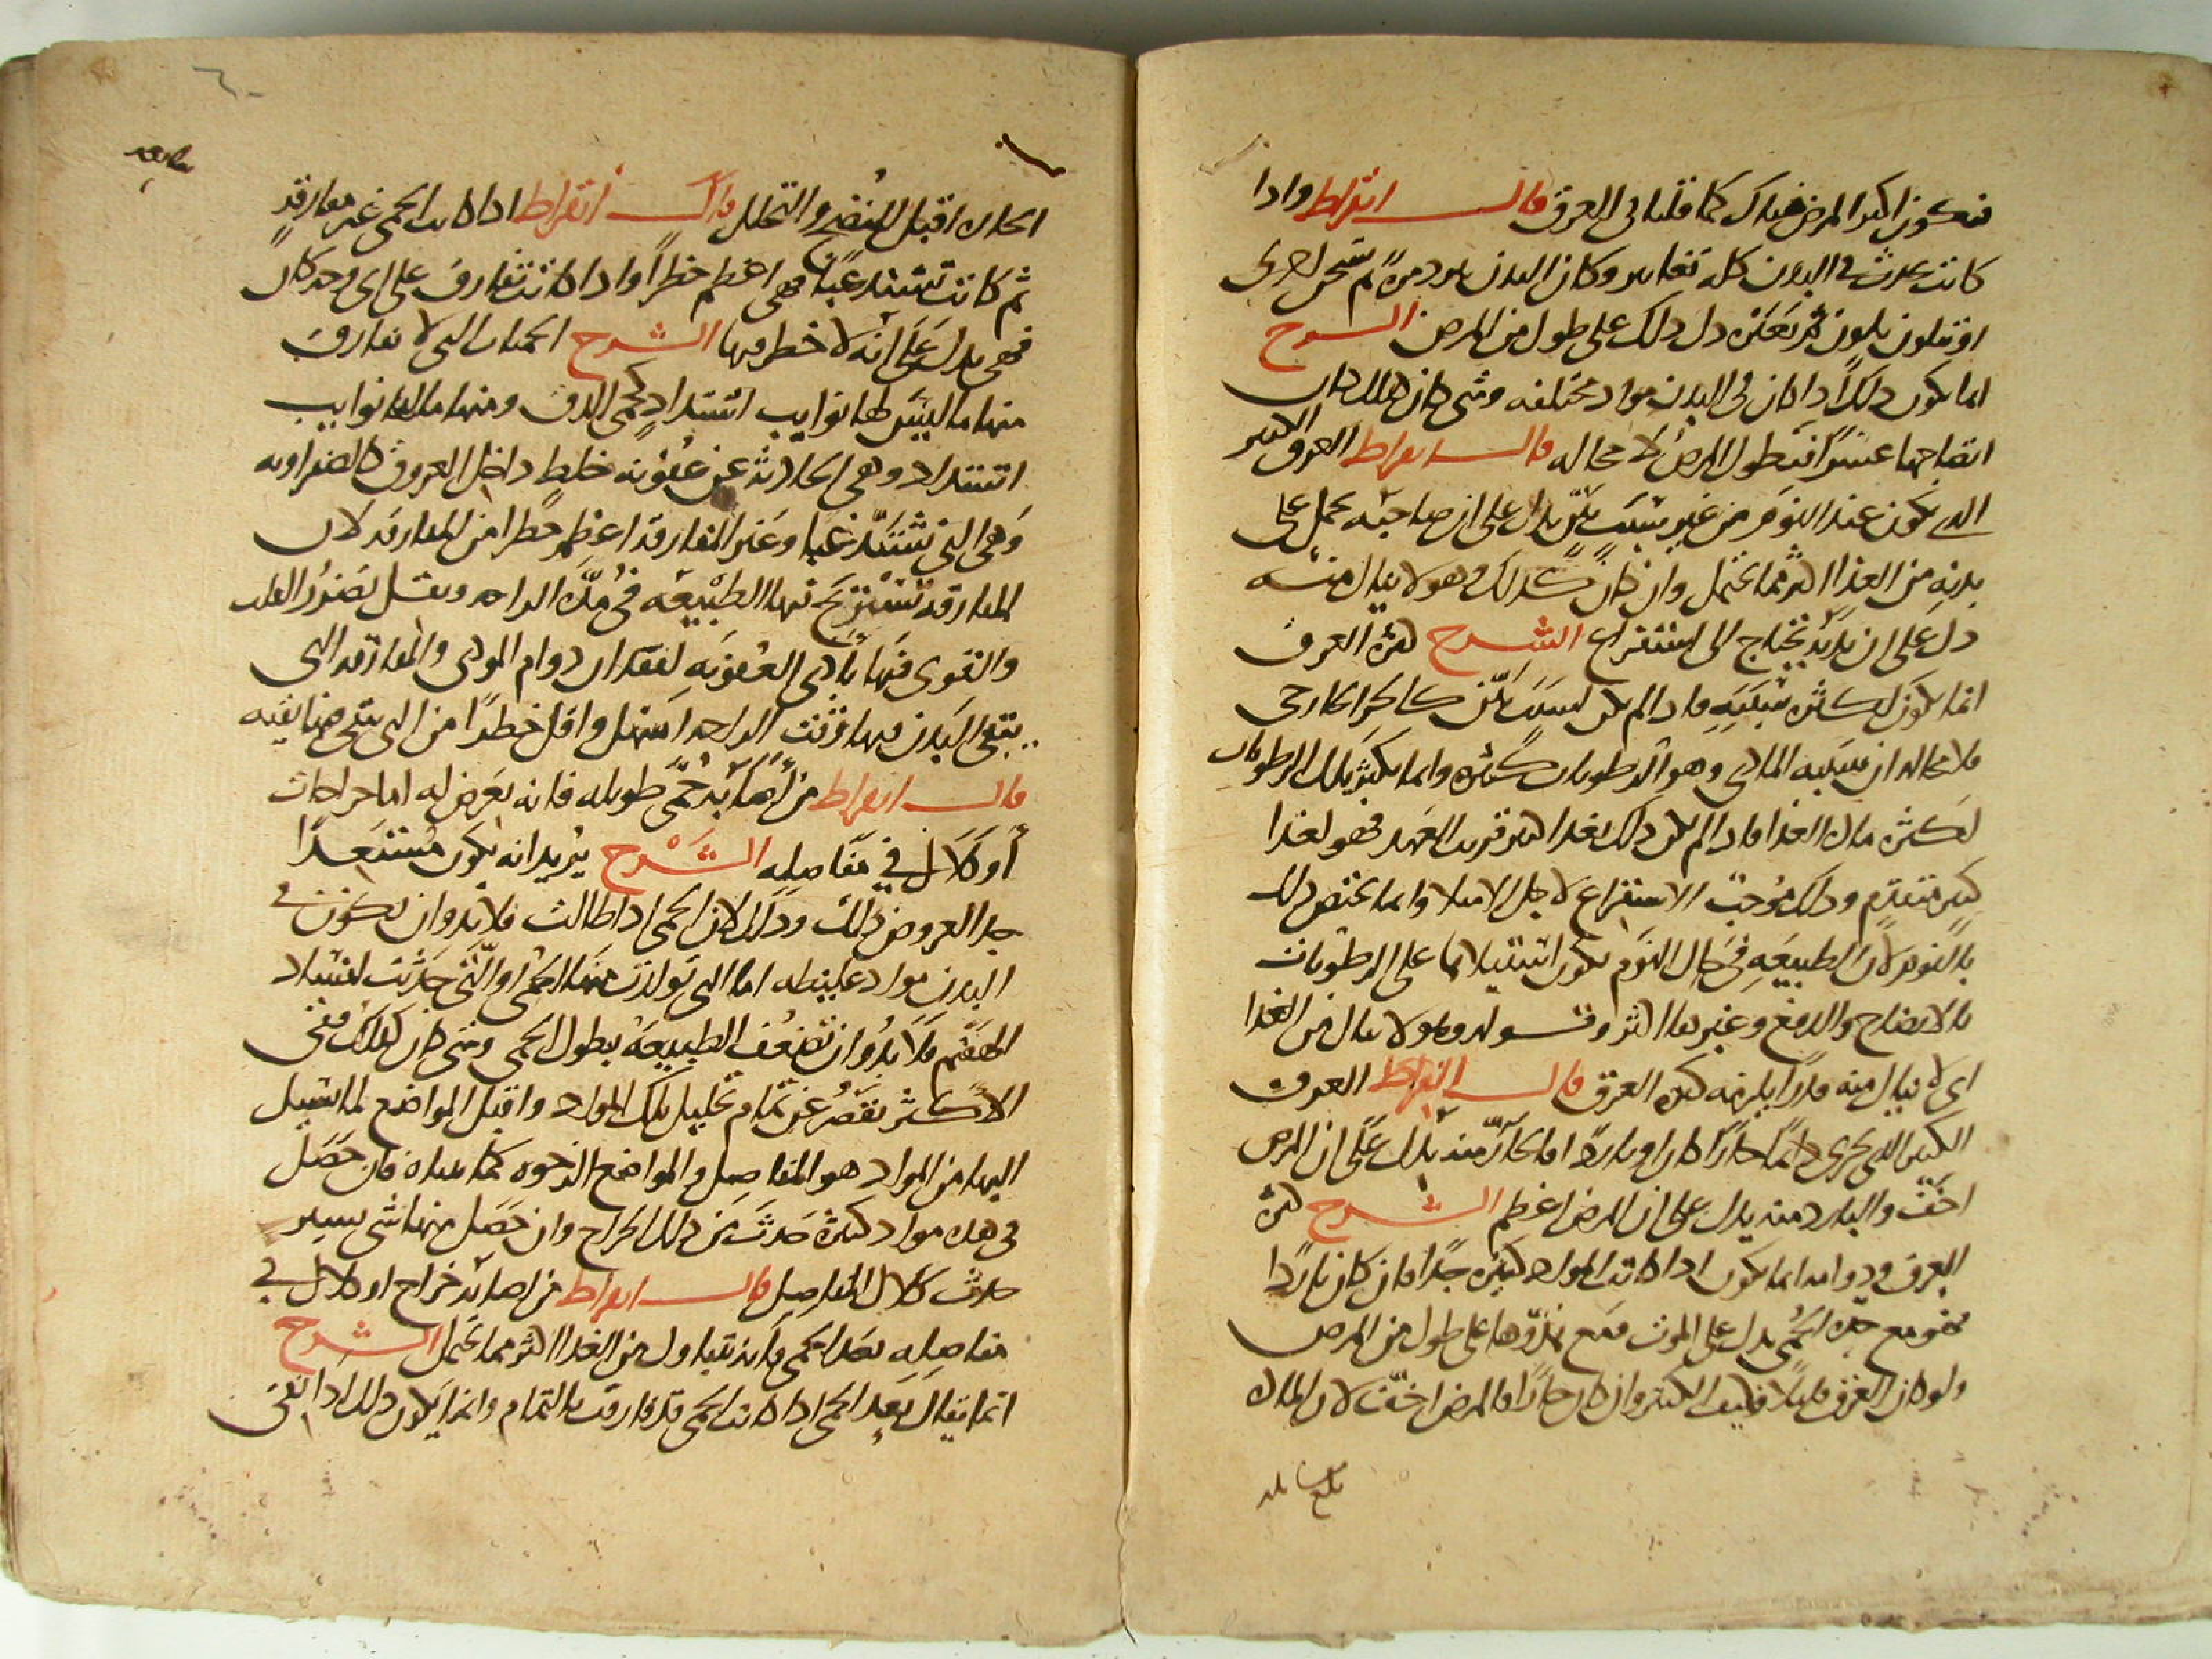 فتكون اكثر المرض هناك كما قلنا في العرق قال ابقراط واذا
كانت تحدث في البدن كله تغايير وكان البدن يبرد مرة ثم يسخن اخرى
او يتلون بلون ثم بغيره دل ذلك على طول من المرض الشرح
انما يكون ذلك اذا كان في البدن مواد مختلفه ومتى كان كذلك كان
انضاجها عسرا فيطول المرض لا محاله قال ابقراط العرق الكثير
الذي يكون عند النوم من غير سبب بيّن يدل على ان صاحبه يحمل على
بدنه من الغذا اكثر مما يحتمل وان كان كذلك وهو لا ينال منه
دل على ان بدنه يحتاج الى استفراغ الشرح كثرة العرق
انما يكون لكثرة سببه فاذا لم يكن لسبب بيّن كالحر الخارجى
فلا محاله ان سببه المادى وهو الرطوبات كثيرة وانما يكثر تلك الرطوبات
لكثرة مادة الغذا فاذا لم يكن ذلك لغذا كثير قريب العهد فهو لغذا
كثير متقدم وذلك موجب الاستفراغ لاجل الامتلا وانما يختص ذلك
بالنوم لان الطبيعه في حال النوم يكون استيلاها على الرطوبات
بالانضاج والدفع وغيرها اكثر وقوله وهو لا ينال من الغذا
اى لا ينال منه قدرا يلزمه كثرة العرق قال ابقراط العرق
الكثير الذي يجري دائما حارا كان او باردا اما الحار منه يدل على ان المرض
اخف والبارد منه يدل على ان المرض اعظم الشرح كثرة
العرق ودوامه انما يكون اذا كانت المواد كثيره جدا فان كان باردا
فهو مع حدة الحمى يدل على الموت ومع هدوها على طول من المرض
ولو كان العرق قليلا فكيف الكثير وان كان حارا فالمرض اخف لان المادة
بلغ مقابله
الحارة اقبل للنضج والتحلل قال ابقراط اذا كانت الحمى غير مفارقة
ثم كانت تشتد غبا فهى اعظم خطرا واذا كانت تفارق على اى وجه كان
فهى يدل على انه لا خطر فيها الشرح الحميات التى لا تفارق
منها ما ليس لها نوايب اشتداد كحمى الدق ومنها ما لها نوايب
اشتداد وهى الحادثة عن عفونة خلط داخل العروق كالصفراويه
وهى التى تشتد غبا وغير المفارقة اعظم خطرا من المفارقة لان
المفارقة تستريح فيها الطبيعه فى مدة الراحه ويقل تضرر القلب
والقوى فيها بأذى العفونه لفقدان دوام الموذى والمفارقة التى
يبقى البدن فيها وقت الراحه اسهل واقل خطرا من التى يبقى فيها بقيه
قال ابقراط من اصابته حمى طويله فانه يعرض له اما خراجات
أو كلال في مفاصله الشرح يريد انه يكون مستعدا
جدا لعروض ذلك وذلك لان الحمى اذا طالت فلا بد وان تكون في
البدن مواد غليظه اما التى تولدت منها الحمى او التى حدثت لفساد
الهضم فلا بد وان تضعف الطبيعه بطول الحمى ومتى كان كذلك ففى
الاكثر تقصر عن تمام تحليل تلك المواد واقبل المواضع لما يسيل
اليها من المواد هو المفاصل والمواضع الرخوه كما علمناه فان حصل
فى هذه مواد كثيرة حدث عن ذلك الخراج وان حصل منها شى يسير
حدث كلال المفاصل قال ابقراط من اصابته خراج او كلال في
مفاصله بعد الحمى فانه يتناول من الغذا اكثر مما يحتمل الشرح
انما يقال بعد الحمى اذا كانت الحمى قد فارقت بالتمام وانما يكون ذلك اذا نقى